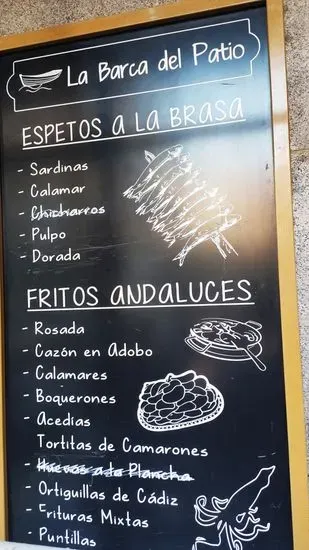 La Barca del Patio
ESPETOS A LA BRASA
- Sardinas
- Calamar
- Chicharros
- Pulpo
- Dorada
FRITOS ANDALUCES
- Rosada
- Cazón en Adobo
- Calamares
- Boquerones
- Acedías
Tortitas de Camarones
- Huevos a la Plancha
- Ortiguillas de Cádiz
- Frituras Mixtas
- Puntillas